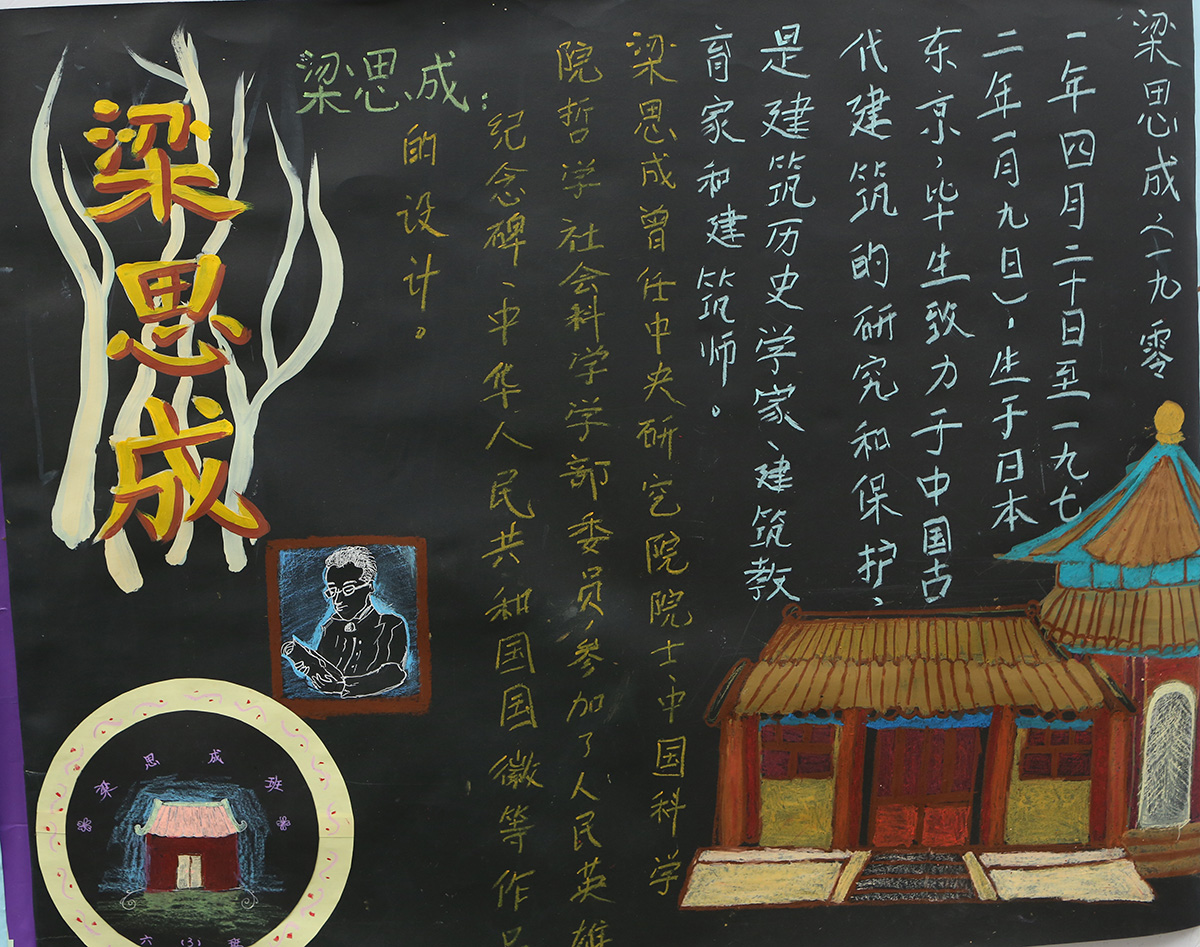 梁思成(一九零
一年四月二十日至一九七
二年一月九日)。生于日本
东京，毕生致力于中国古
代建筑的研究和保护、
是建筑历史学家、建筑教
育家和建筑师。
梁思成曾任中央研究院院士、中国科学
院哲学社会科学学部委员，参加了人民英雄
纪念碑、中华人民共和国国徽等作品
的设计。
梁思成：
梁思成
梁思成班
六(3)班